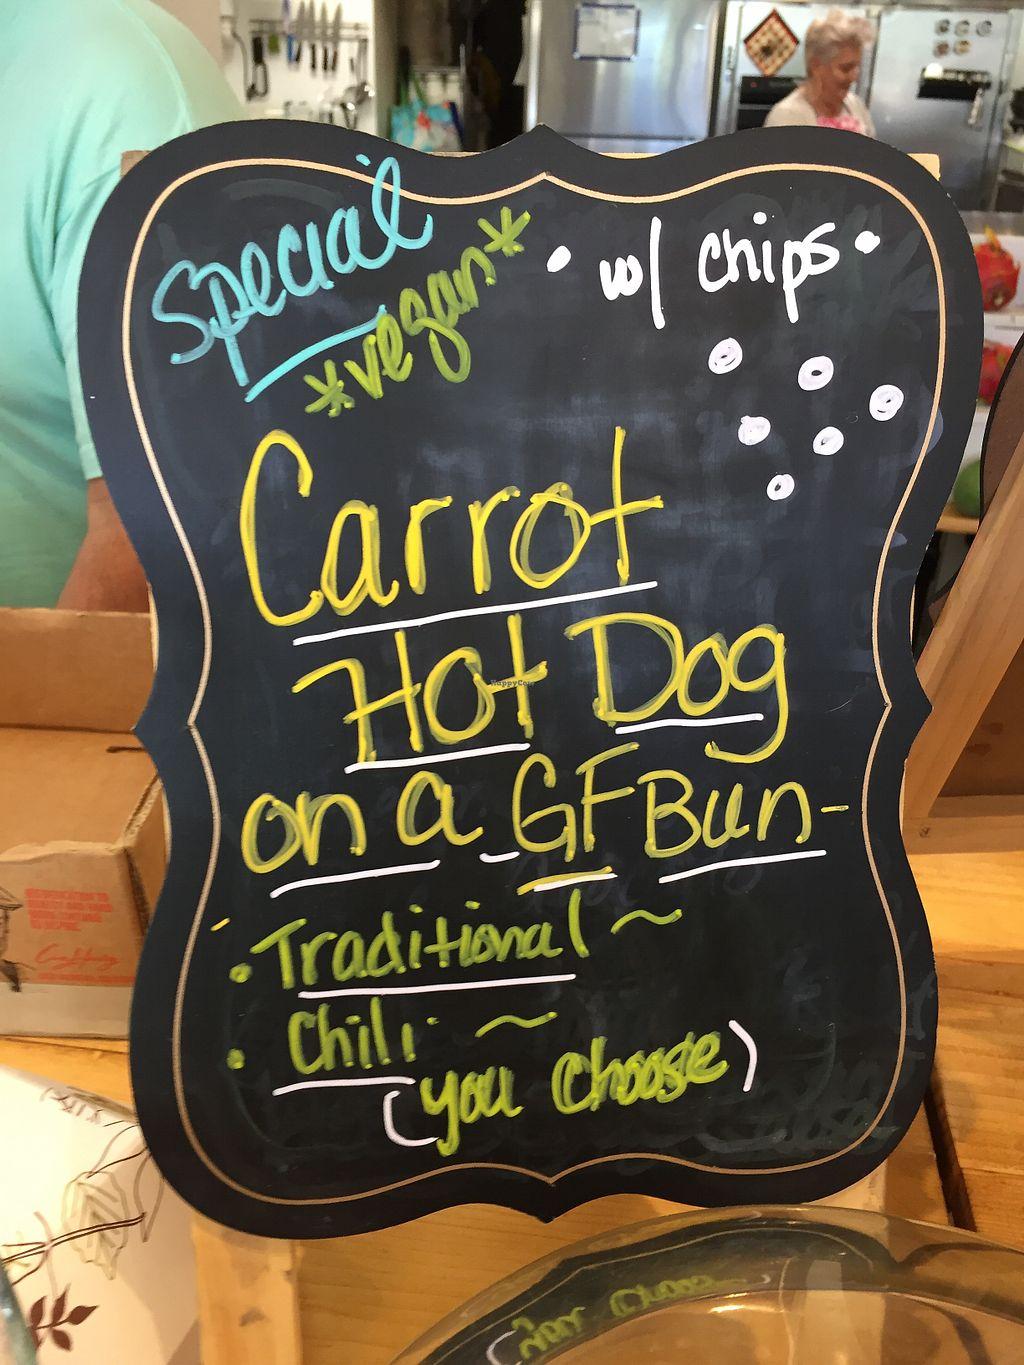 Special
*vegan*
• w/ chips •
Carrot
Hot Dog
HappyCow
on a GF Bun-
• Traditional ~
• Chili ~
(you choose)